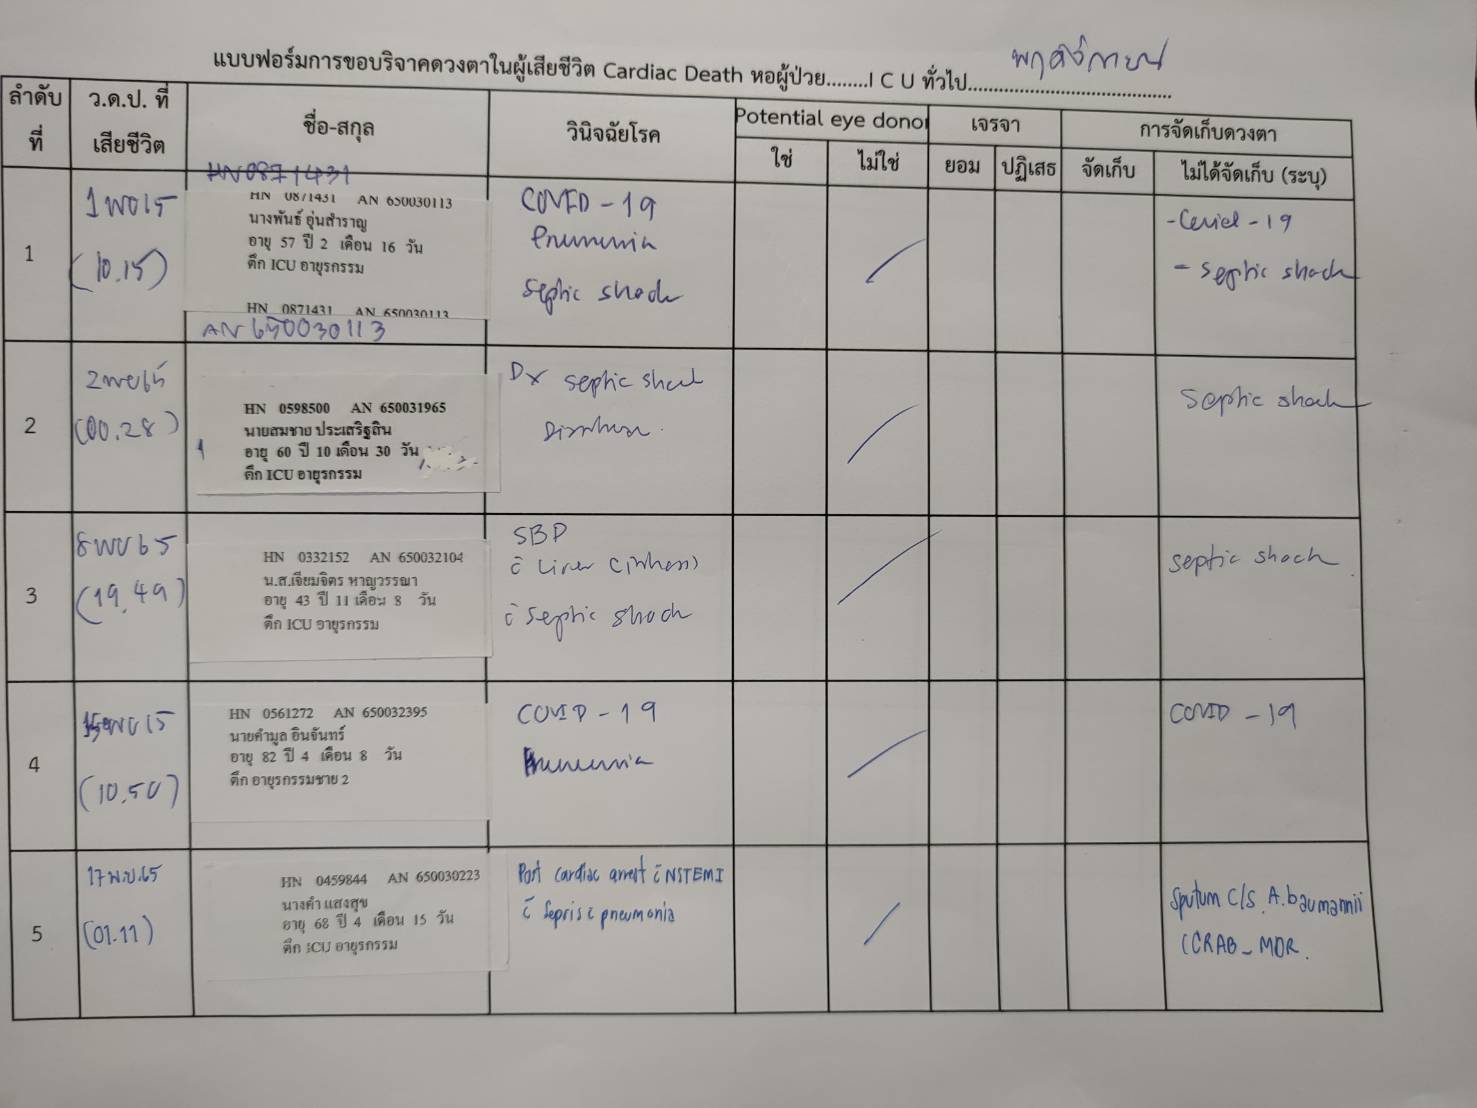 แบบฟอร์มการขอบริจาคดวงตาในผู้เสียชีวิต Cardiac Death หอผู้ป่วย........I C U ทั่วไป........................................
ลำดับที่ ว.ด.ป. ที่เสียชีวิต ชื่อ-สกุล วินิจฉัยโรค Potential eye donor เจรจา การจัดเก็บดวงตา
ใช่ ไม่ใช่ ยอม ปฏิเสธ จัดเก็บ ไม่ได้จัดเก็บ (ระบุ)
1
(10.15)
HN0871431
HN 0871431 AN 650030113
นางพันธ์ อุ่นสำราญ
อายุ 57 ปี 2 เดือน 16 วัน
ตึก ICU อายุรกรรม
HN 0871431 AN 650030113
AN 650030113
COVID - 19
Pneumonia
septic shock
- Covid - 19
- septic shock
2
2 พย 65
(00.28)
HN 0598500 AN 650031965
นายสมชาย ประเสริฐสิน
อายุ 60 ปี 10 เดือน 30 วัน
ตึก ICU อายุรกรรม
Dx septic shock
septic shock
3
8 พย 65
(19.49)
HN 0332152 AN 650032104
น.ส.เจียมจิตร หาญวรรณา
อายุ 43 ปี 11 เดือน 8 วัน
ตึก ICU อายุรกรรม
SBP
c̄ Liver cirrhosis
c̄ septic shock
septic shock
4
(10.50)
HN 0561272 AN 650032395
นายคำมูล อินจันทร์
อายุ 82 ปี 4 เดือน 8 วัน
ตึก อายุรกรรมชาย 2
COVID - 19
Pneumonia
COVID - 19
5
17 พ.ย. 65
(01.11)
HN 0459844 AN 650030223
นางคำ แสงสุข
อายุ 68 ปี 4 เดือน 15 วัน
ตึก ICU อายุรกรรม
Post cardiac arrest c̄ NSTEMI
c̄ Sepsis c̄ pneumonia
Sputum C/S A.baumannii
(CRAB_MDR.